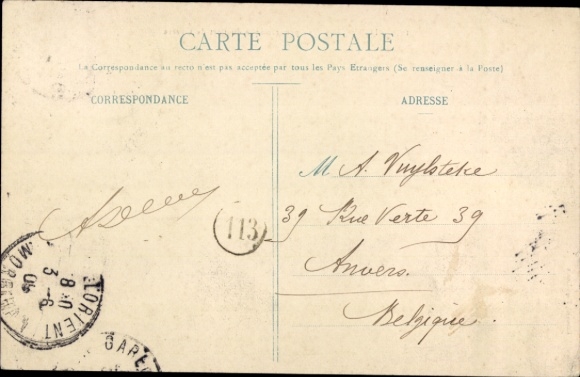 CARTE POSTALE
La Correspondance au recto n'est pas acceptée par tous les Pays Etrangers (Se renseigner à la Poste)
CORRESPONDANCE
ADRESSE
M A. Vuylsteke
39 Rue Verte 39
Anvers.
Belgique.
113
LORIENT MORBIHAN
8 10
3 - 8
05
GARE